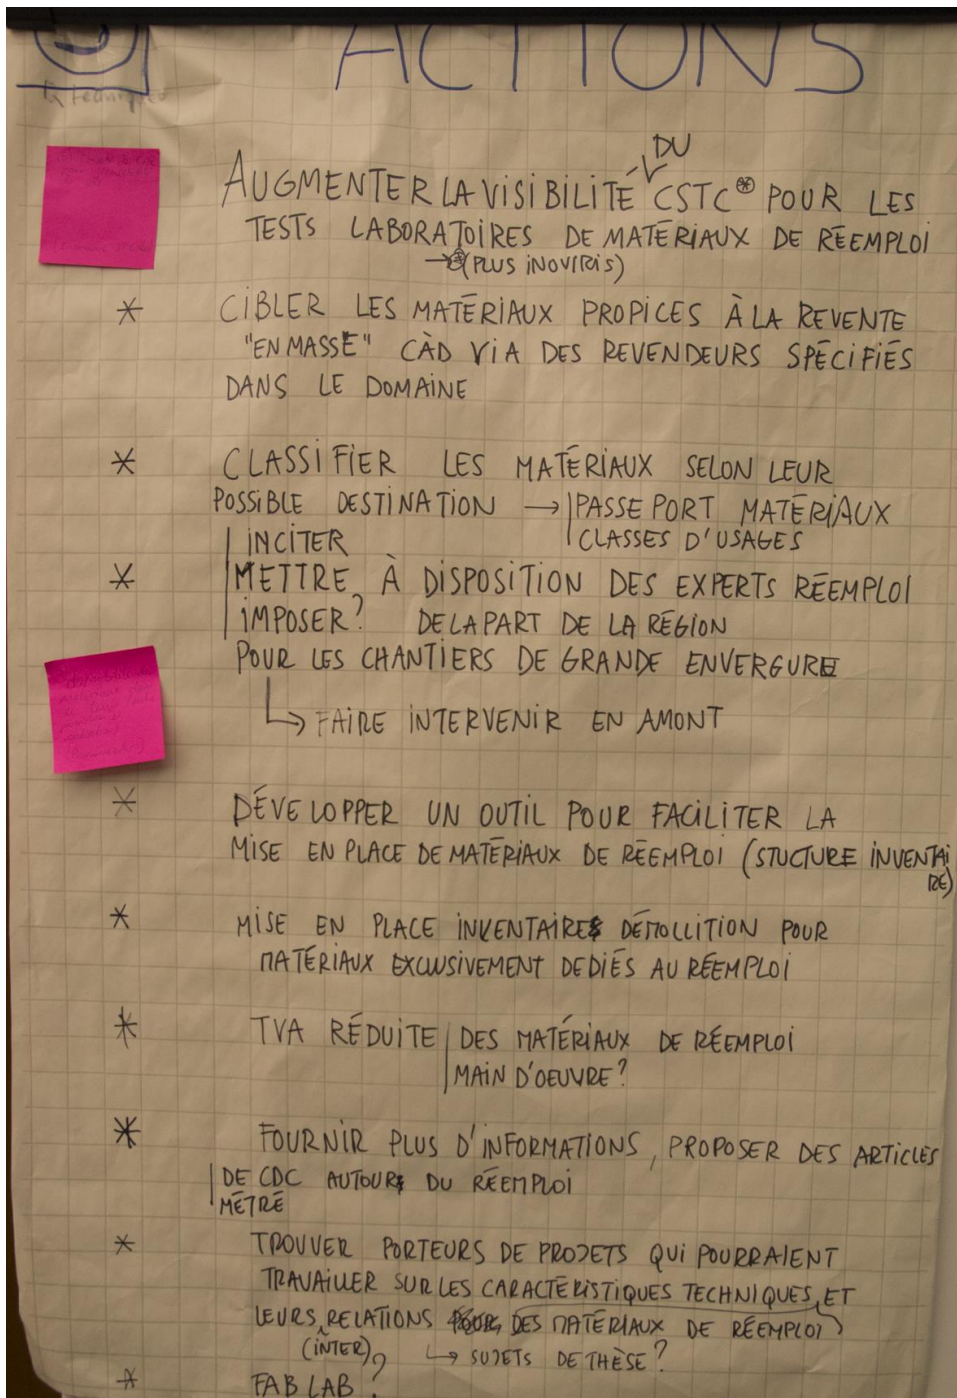 ACTIONS
AUGMENTER LA VISIBILITÉ DU CSTC* POUR LES
TESTS LABORATOIRES DE MATÉRIAUX DE RÉEMPLOI
→ * (PLUS INOVIRIS)
* CIBLER LES MATÉRIAUX PROPICES À LA REVENTE
"EN MASSE" CÀD VIA DES REVENDEURS SPÉCIFIÉS
DANS LE DOMAINE
* CLASSIFIER LES MATÉRIAUX SELON LEUR
POSSIBLE DESTINATION → PASSEPORT MATÉRIAUX
CLASSES D'USAGES
INCITER
* METTRE À DISPOSITION DES EXPERTS RÉEMPLOI
IMPOSER? DE LA PART DE LA RÉGION
POUR LES CHANTIERS DE GRANDE ENVERGURE
↳ FAIRE INTERVENIR EN AMONT
* DÉVELOPPER UN OUTIL POUR FACILITER LA
MISE EN PLACE DE MATÉRIAUX DE RÉEMPLOI (STUCTURE INVENTAI
RE)
* MISE EN PLACE INVENTAIRES DÉMOLLITION POUR
MATÉRIAUX EXCLUSIVEMENT DEDIÉS AU RÉEMPLOI
* TVA RÉDUITE DES MATÉRIAUX DE RÉEMPLOI
MAIN D'OEUVRE?
* FOURNIR PLUS D'INFORMATIONS, PROPOSER DES ARTICLES
DE CDC AUTOUR DU RÉEMPLOI
MÉTRÉ
* TROUVER PORTEURS DE PROJETS QUI POURRAIENT
TRAVAILLER SUR LES CARACTÉRISTIQUES TECHNIQUES, ET
LEURS RELATIONS DES MATÉRIAUX DE RÉEMPLOI)
(INTER) ↳ SUJETS DE THÈSE?
* FAB LAB?